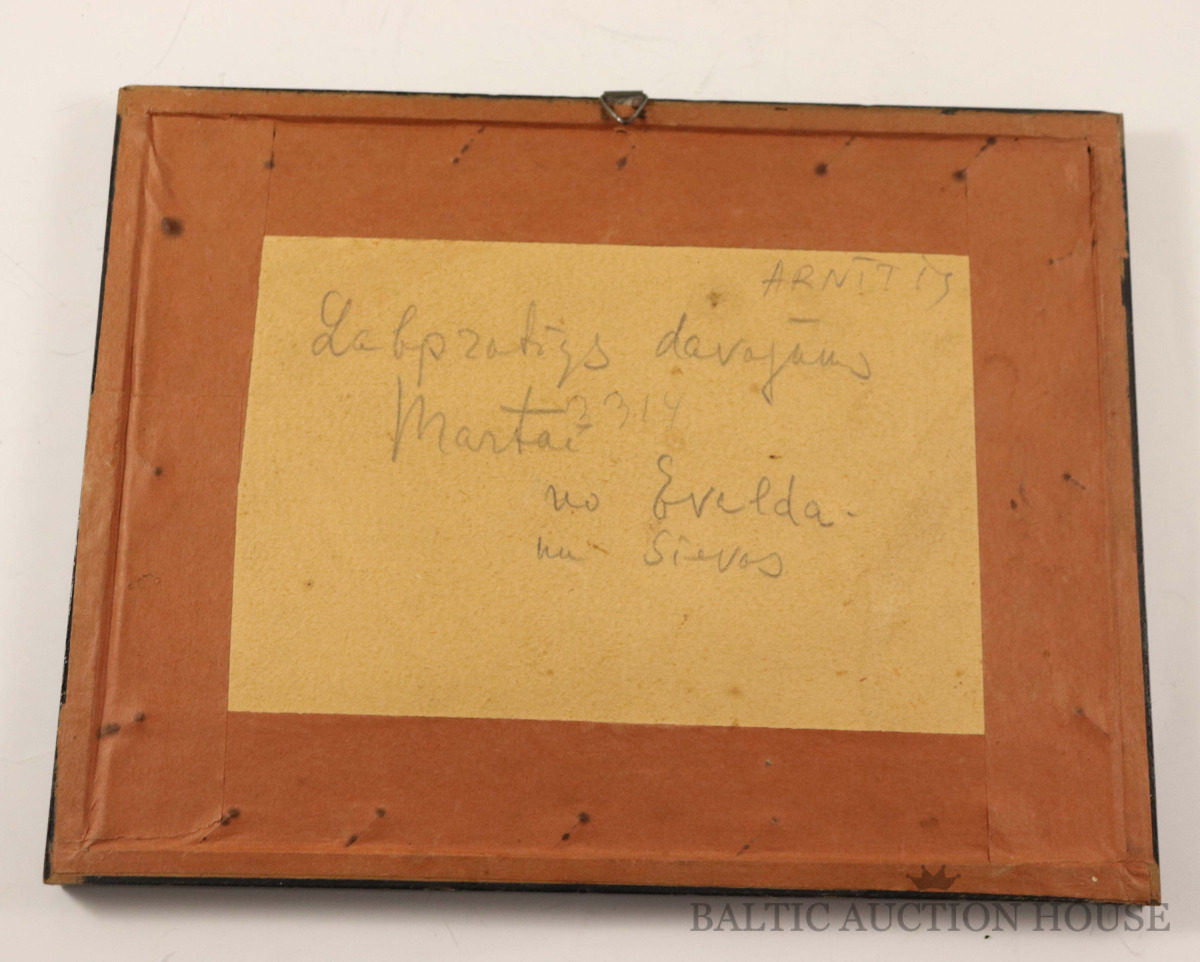 ARNĪTIS
Labprātīgs davājums
Martai 3314
no Evalda.
un Sievas
BALTIC AUCTION HOUSE